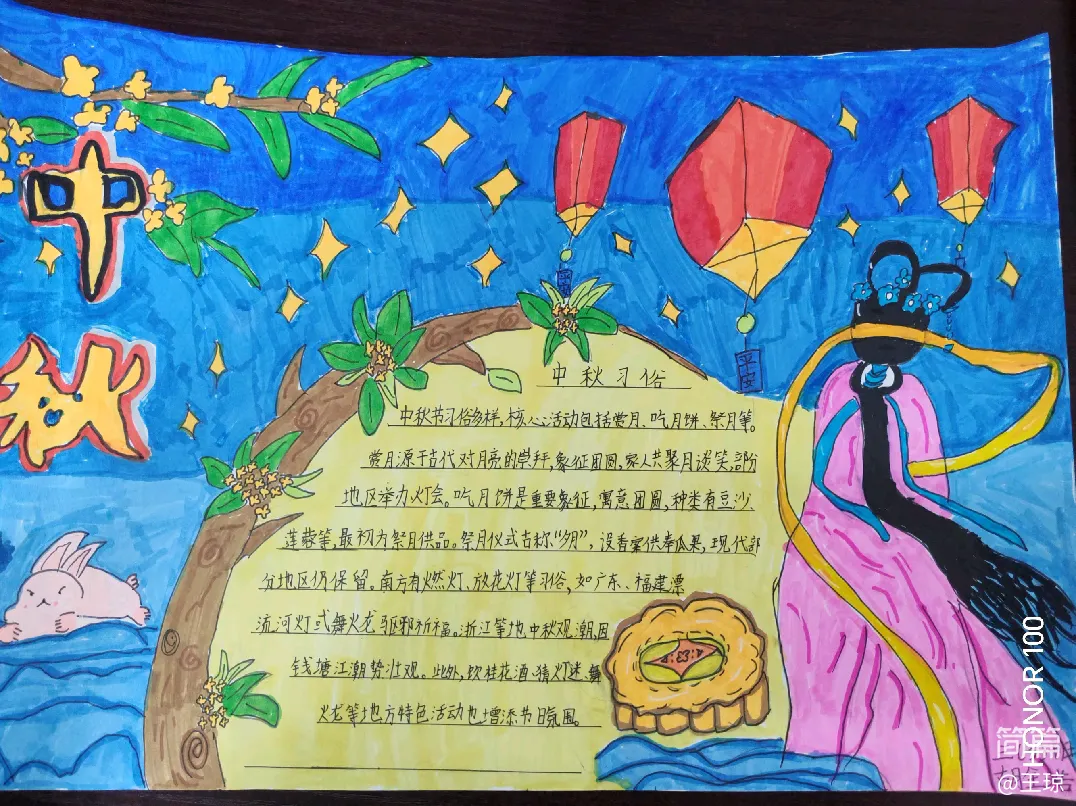 中
秋
平
安
中秋习俗
中秋节习俗多样,核心活动包括赏月、吃月饼、祭月等。
赏月源于古代对月亮的崇拜,象征团圆,家人共聚月谈笑,部份
地区举办灯会。吃月饼是重要象征,寓意团圆,种类有豆沙
莲蓉等,最初为祭月供品。祭月仪式古称“夕月”,设香案供奉瓜果,现代部
分地区仍保留。南方有燃灯、放花灯等习俗,如广东、福建漂
流河灯或舞火龙驱邪祈福。浙江等地中秋观潮,因
钱塘江潮势壮观。此外,饮桂花酒、猜灯迷、舞
火龙等地方特色活动也增添节日氛围。
HONOR 100
简篇
@王琼